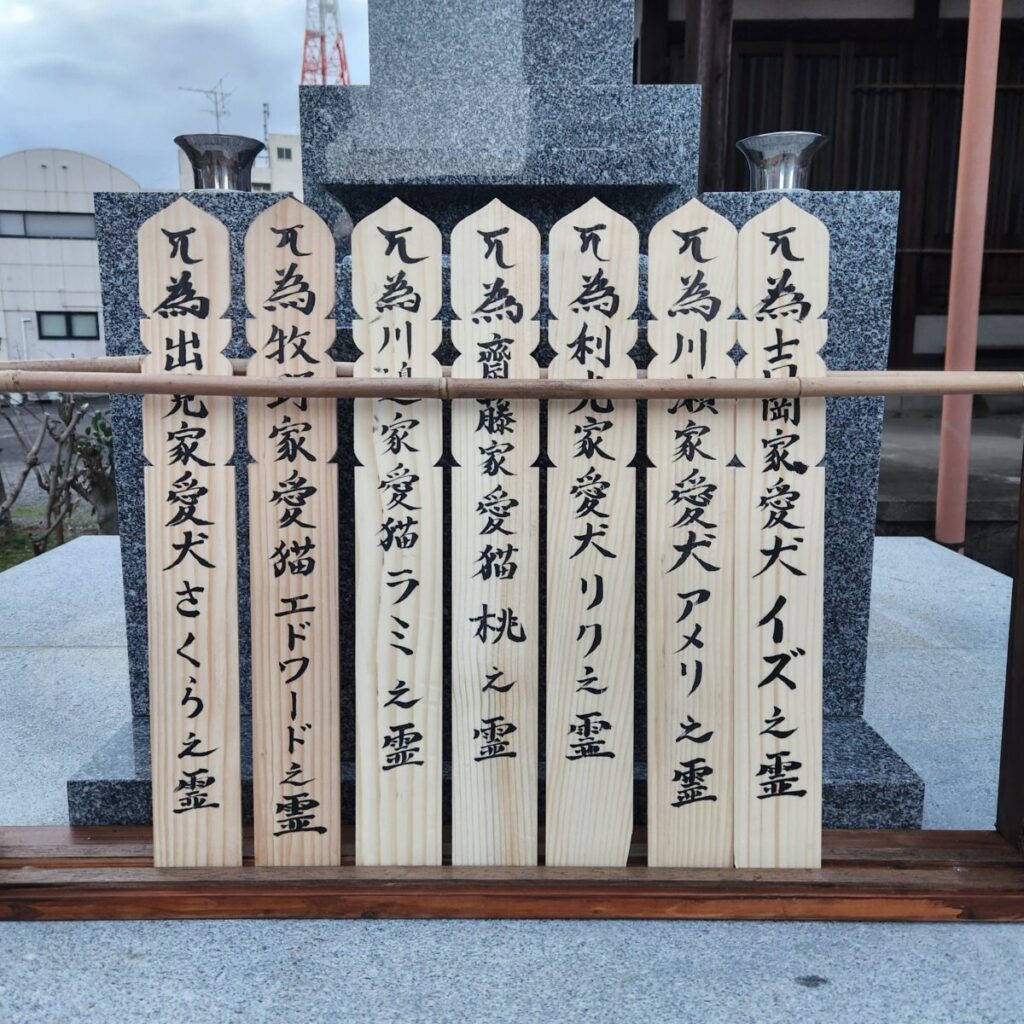 為吉岡家愛犬イズ之霊
為川瀬家愛犬アメリ之霊
為利光家愛犬リク之霊
為齋藤家愛猫桃之霊
為川家愛猫ラミ之霊
為牧野家愛猫エドワード之霊
為出家愛犬さくら之霊